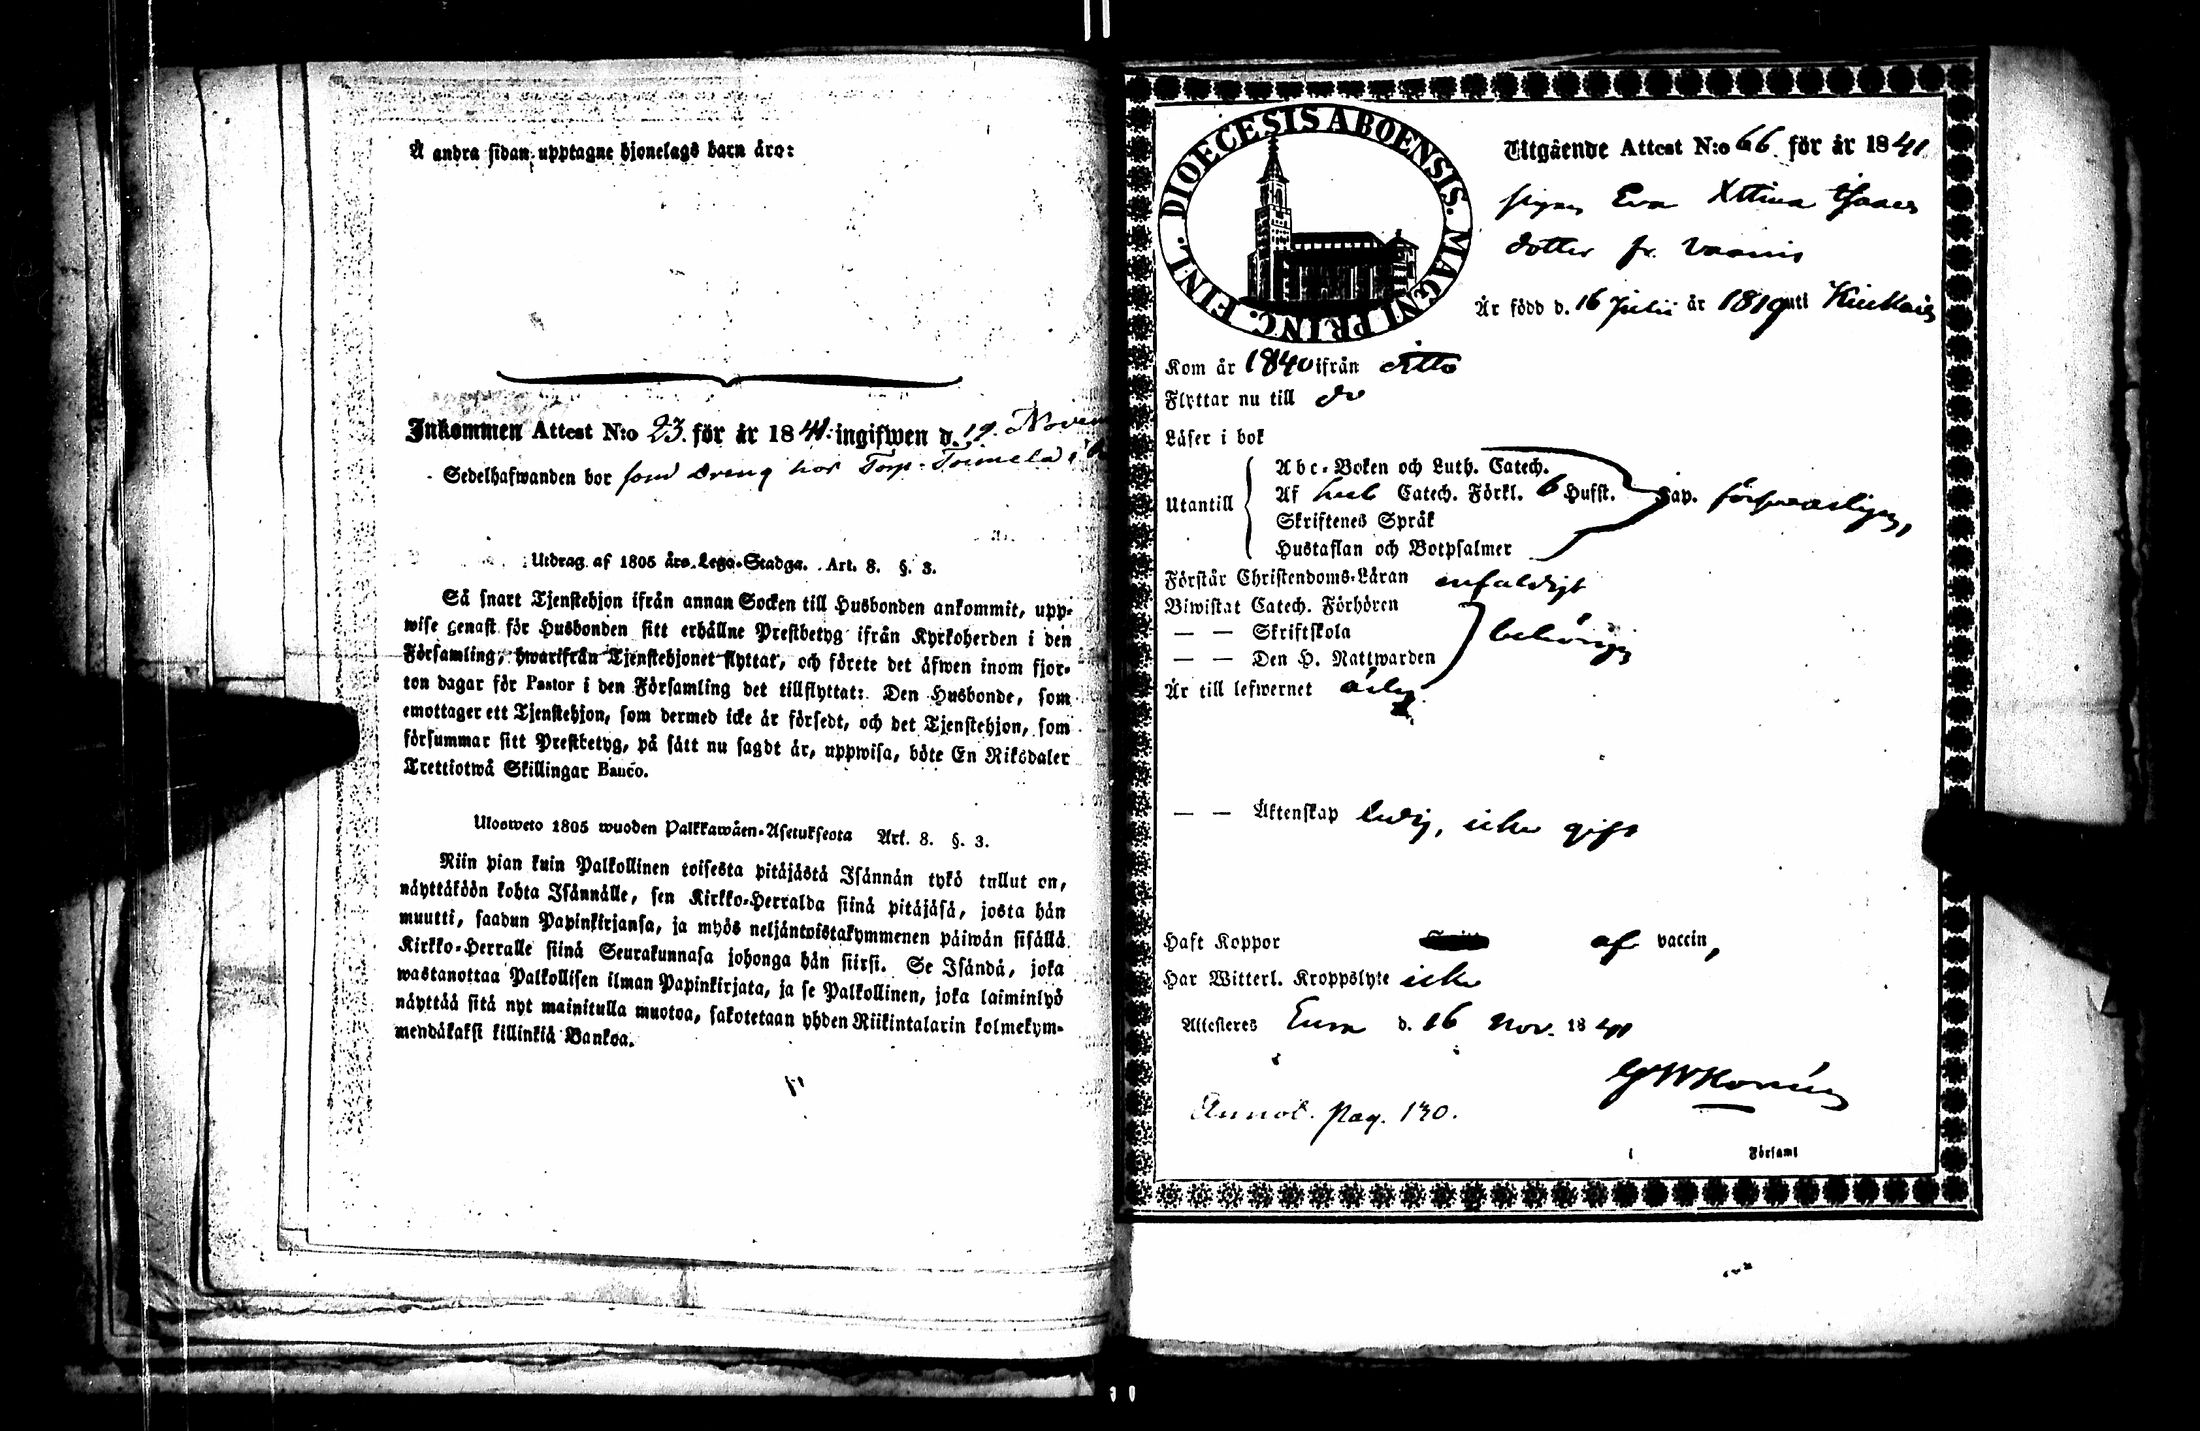 Å andra sidan upptagne hjonelags barn äro:
Inkommen Attest N:o 23. för år 1841. ingifwen d. 19. Novem
Sedelhafwanden bor som Dreng hos Torp. Tommela i
Utdrag af 1805 års Lego-Stadga. Art. 8. §. 3.
Så snart Tjenstehjon ifrån annan Socken till Husbonden ankommit, upp-
wise genast för Husbonden sitt erhållne Prestbetyg ifrån Kyrkoherden i den
Församling, hwarifrån Tjenstehjonet flyttat, och förete det äfwen inom fjor-
ton dagar för Pastor i den Församling det tillflyttat: Den Husbonde, som
emottager ett Tjenstehjon, som dermed icke är försedt, och det Tjenstehjon, som
försummar sitt Prestbetyg, på sätt nu sagdt är, uppwisa, böte En Riksdaler
Trettiotwå Skillingar Banco.
Ulosweto 1805 wuoden Palkkawäen-Asetuksesta Art. 8. §. 3.
Niin pian kuin Palkollinen toisesta pitäjästä Isännän tykö tullut on,
näyttäköön kohta Isännälle, sen Kirkko-Herralda siinä pitäjäsä, josta hän
muutti, saadun Papinkirjansa, ja myös neljäntoistakymmenen päiwän sisällä
Kirkko-Herralle siinä Seurakunnasa johonga hän siirsi. Se Isändä, joka
wastanottaa Palkollisen ilman Papinkirjata, ja se Palkollinen, joka laiminlyö
näyttää sitä nyt mainitulla muotoa, sakotetaan yhden Riikintalarin kolmekym-
mendäkaksi killinkiä Bankoa.
DIOECESIS ABOENSIS. MAGNI PRINC. FINL.
Utgående Attest N:o 66 för år 1841
pigan Eva Xstina Isaacs
dotter fr. Vaanis
Är född d. 16 Julii år 1819 uti Kiukais
Kom år 1840 ifrån ditto
Flyttar nu till do
Läser i bok
Abc-Boken och Luth. Catech.
Utantill Af heb Catech. Förkl. 6 Hufst. Cap. försvarligen,
Skriftenes Språk
Hustaflan och Botpsalmer
Förstår Christendoms-Läran enfaldigt
Biwistat Catech. Förhören
— — Skriftskola behörigen
— — Den H. Nattwarden
Är till lefwernet ärlig
— — Äktenskap ledig, icke gift
Haft Koppor af vaccin,
Har Witterl. Kroppslyte icke
Attesteres Eura d. 16 Nov. 1841
Annot. pag. 130.
i Församl